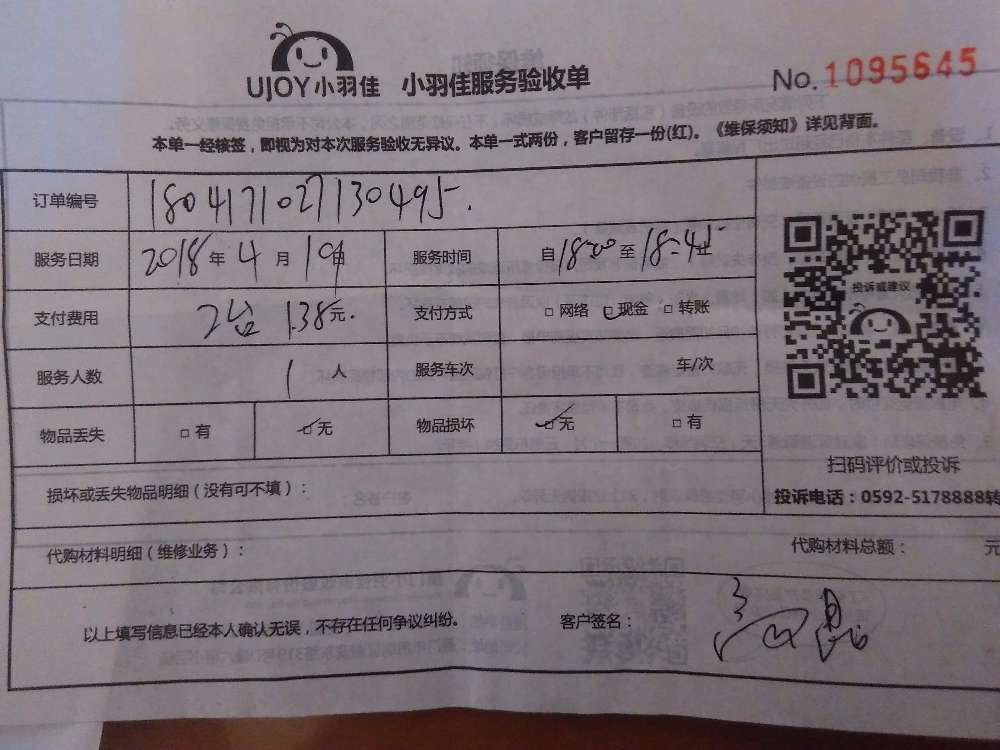 UJOY小羽佳 小羽佳服务验收单
No.1095645
本单一经核签，即视为对本次服务验收无异议。本单一式两份，客户留存一份(红)。《维保须知》详见背面。
订单编号 1804171027130495.
服务日期 2018年4月19日 服务时间 自18:00至18:45
支付费用 2台 138元. 支付方式 □网络 □现金 □转账
服务人数 1人 服务车次 车/次
物品丢失 □有 □无 物品损坏 □无 □有
投诉或建议
扫码评价或投诉
投诉电话：0592-5178888转
损坏或丢失物品明细（没有可不填）：
代购材料明细（维修业务）： 代购材料总额： 元
以上填写信息已经本人确认无误，不存在任何争议纠纷。 客户签名：